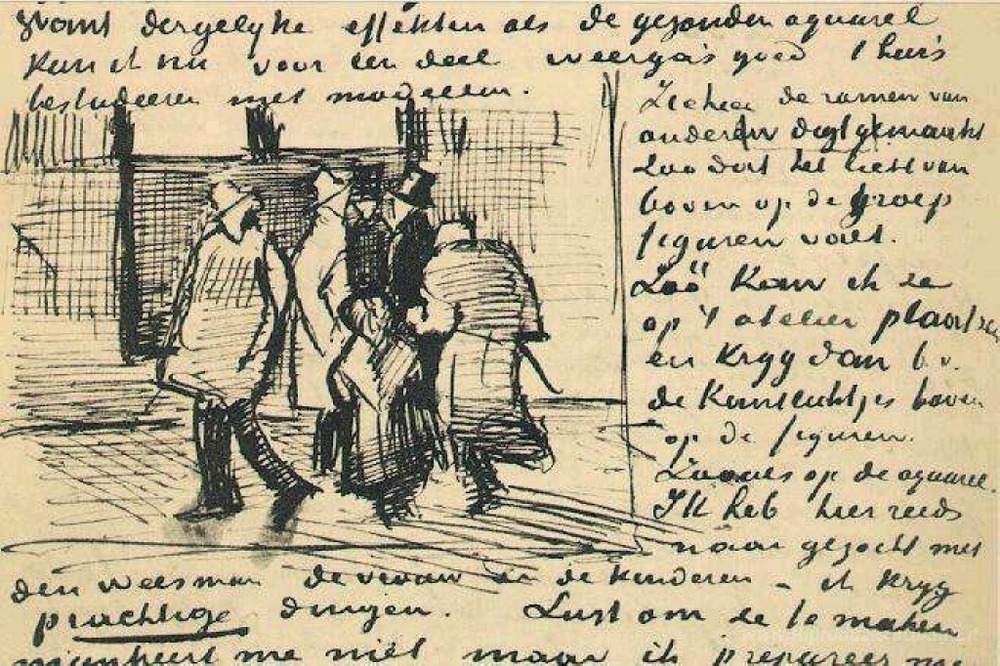 want dergelyke effekten als de gezonden aquarel
Kan ik nu voor een deel weergaas goed thuis
bestudeeren met modellen.
Ik heb de ramen van
onderen digt gemaakt
Zoo dat het licht van
boven op de groep
figuren valt.
Zoo Kan ik ze
op 't atelier plaatsen
en Kryg dan b.v.
de Kantlichtjes boven
op de figuren.
Zooals op de aquarel.
Ik heb hier reeds
naar gezocht met
den weesman de vrouw en de Kinderen – ik Kryg
prachtige dingen. Lust om ze te maken
mankeert me niet maar ik prepareer